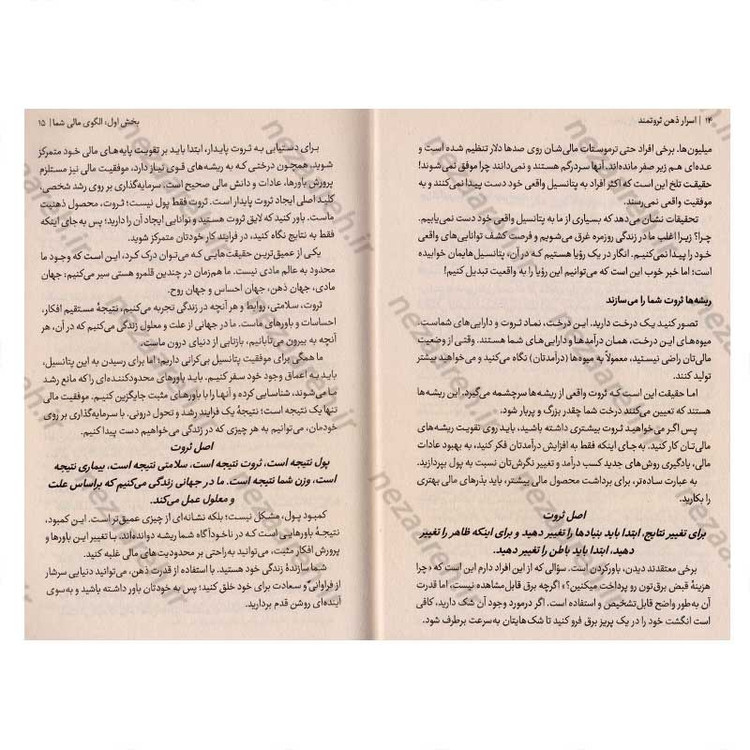 ۱۴ | اسرار ذهن ثروتمند
میلیون‌ها. برخی افراد حتی ترموستات مالی‌شان روی صدها دلار تنظیم شده است و
عده‌ای هم زیر صفر مانده‌اند. آنها سردرگم هستند و نمی‌دانند چرا موفق نمی‌شوند!
حقیقت تلخ این است که اکثر افراد به پتانسیل واقعی خود دست پیدا نمی‌کنند و به
موفقیت واقعی نمی‌رسند.
تحقیقات نشان می‌دهد که بسیاری از ما به پتانسیل واقعی خود دست نمی‌یابیم.
چرا؟ زیرا اغلب ما در زندگی روزمره غرق می‌شویم و فرصت کشف توانایی‌های واقعی
خود را پیدا نمی‌کنیم. انگار در یک رؤیا هستیم که در آن، پتانسیل‌هایمان خوابیده
است؛ اما خبر خوب این است که می‌توانیم این رؤیا را به واقعیت تبدیل کنیم!
ریشه‌ها ثروت شما را می‌سازند
تصور کنید یک درخت دارید. این درخت، نماد ثروت و دارایی‌های شماست.
میوه‌های این درخت، همان درآمدها و دارایی‌های شما هستند. وقتی از وضعیت
مالی‌تان راضی نیستید، معمولاً به میوه‌ها (درآمدتان) نگاه می‌کنید و می‌خواهید بیشتر
تولید کنند.
اما حقیقت این است که ثروت واقعی از ریشه‌ها سرچشمه می‌گیرد. این ریشه‌ها
هستند که تعیین می‌کنند درخت شما چقدر بزرگ و پربار شود.
پس اگر می‌خواهید ثروت بیشتری داشته باشید، باید روی تقویت ریشه‌های
مالی‌تان کار کنید. به جای اینکه فقط به افزایش درآمدتان فکر کنید، به بهبود عادات
مالی، یادگیری روش‌های جدید کسب درآمد و تغییر نگرش‌تان نسبت به پول بپردازید.
به عبارت ساده‌تر، برای برداشت محصول مالی بیشتر، باید بذرهای مالی بهتری
را بکارید.
اصل ثروت
برای تغییر نتایج، ابتدا باید بنیادها را تغییر دهید و برای اینکه ظاهر را تغییر
دهید، ابتدا باید باطن را تغییر دهید.
برخی معتقدند دیدن، باورکردن است. سؤالی که از این افراد دارم این است که «چرا
هزینهٔ قبض برق‌تون رو پرداخت میکنین؟» اگرچه برق قابل‌مشاهده نیست، اما قدرت
آن به‌طور واضح قابل‌تشخیص و استفاده است. اگر درمورد وجود آن شک دارید، کافی
است انگشت خود را در یک پریز برق فرو کنید تا شک‌هایتان به‌سرعت برطرف شود.
بخش اول: الگوی مالی شما | ۱۵
برای دستیابی به ثروت پایدار، ابتدا باید بر تقویت پایه‌های مالی خود متمرکز
شوید. همچون درختی که به ریشه‌های قوی نیاز دارد، موفقیت مالی نیز مستلزم
پرورش باورها، عادات و دانش مالی صحیح است. سرمایه‌گذاری بر روی رشد شخصی،
کلید اصلی ایجاد ثروت پایدار است. ثروت فقط پول نیست؛ ثروت، محصول ذهنیت
ماست. باور کنید که لایق ثروت هستید و توانایی ایجاد آن را دارید؛ پس به جای اینکه
فقط به نتایج نگاه کنید، در فرایند کار خودتان متمرکز شوید.
یکی از عمیق‌ترین حقیقت‌هایی که می‌توان درک کرد، این است که وجود ما
محدود به عالم مادی نیست. ما هم‌زمان در چندین قلمرو هستی سیر می‌کنیم: جهان
مادی، جهان ذهن، جهان احساس و جهان روح.
ثروت، سلامتی، روابط و هر آنچه در زندگی تجربه می‌کنیم، نتیجهٔ مستقیم افکار،
احساسات و باورهای ماست. ما در جهانی از علت و معلول زندگی می‌کنیم که در آن، هر
آنچه به بیرون می‌تابانیم، بازتابی از دنیای درون ماست.
ما همگی برای موفقیت پتانسیل بی‌کرانی داریم؛ اما برای رسیدن به این پتانسیل،
باید به اعماق وجود خود سفر کنیم. باید باورهای محدودکننده‌ای را که مانع رشد
ما می‌شوند، شناسایی کرده و آنها را با باورهای مثبت جایگزین کنیم. موفقیت مالی
تنها یک نتیجه است؛ نتیجهٔ یک فرایند رشد و تحول درونی. با سرمایه‌گذاری بر روی
خودمان، می‌توانیم به هر چیزی که در زندگی می‌خواهیم دست پیدا کنیم.
اصل ثروت
پول نتیجه است، ثروت نتیجه است، سلامتی نتیجه است، بیماری نتیجه
است، وزن شما نتیجه است. ما در جهانی زندگی می‌کنیم که براساس علت
و معلول عمل می‌کند.
کمبود پول، مشکل نیست؛ بلکه نشانه‌ای از چیزی عمیق‌تر است. این کمبود،
نتیجهٔ باورهایی است که در ناخودآگاه شما ریشه دوانده‌اند. با تغییر این باورها و
پرورش افکار مثبت، می‌توانید به‌راحتی بر محدودیت‌های مالی غلبه کنید.
شما سازندهٔ زندگی خود هستید. با استفاده از قدرت ذهن، می‌توانید دنیایی سرشار
از فراوانی و سعادت برای خود خلق کنید؛ پس به خودتان باور داشته باشید و به‌سوی
آینده‌ای روشن قدم بردارید.